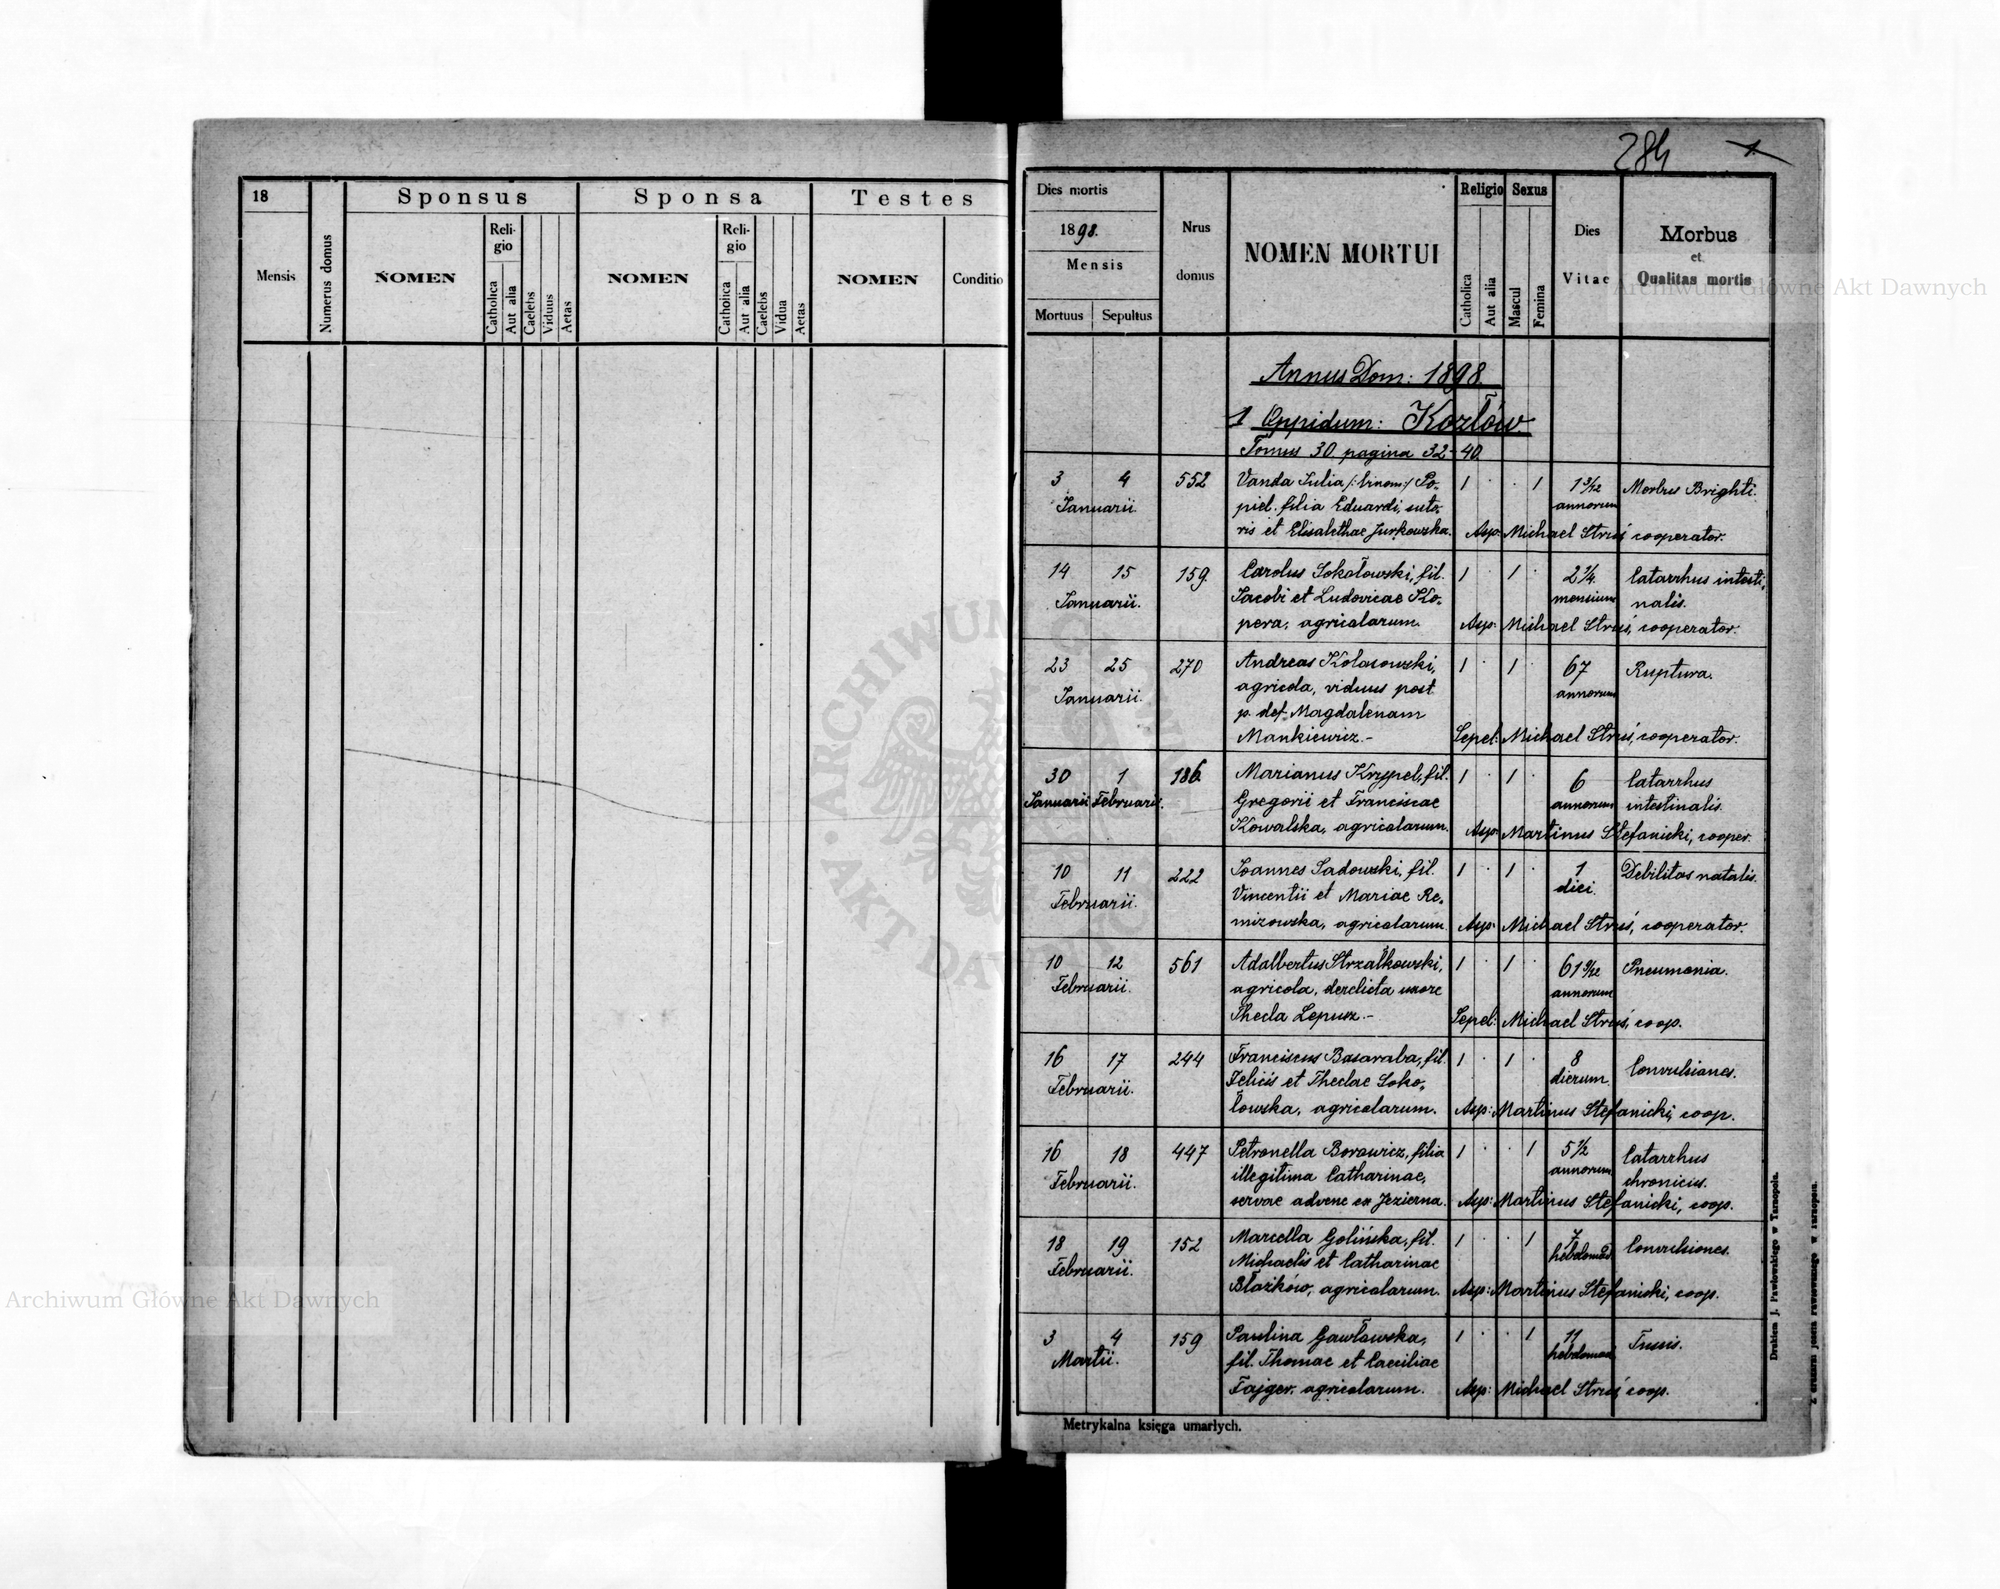 18
Sponsus
Sponsa
Testes
Mensis
Numerus domus
NOMEN
Religio
Catholica
Aut alia
Caelebs
Viduus
Aetas
NOMEN
Religio
Catholica
Aut alia
Caelebs
Vidua
Aetas
NOMEN
Conditio
284
1
Dies mortis
1898.
Mensis
Mortuus
Sepultus
Nrus
domus
NOMEN MORTUI
Religio
Sexus
Catholica
Aut alia
Mascul
Femina
Dies
Vitae
Morbus
et
Qualitas mortis
Annus Dom: 1898.
1 Oppidum: Kozłów
Tomus 30. pagina 32-40.
3 4 552 Vanda Julia /:binom:/ Po- 1 · · 1 1 3/12 Morbus Brighti.
Januarii. piel. filia Eduardi, suto- annorum
ris et Elisabethae Jurkowska. Asp: Michael Struś cooperator.
14 15 159. Carolus Sokołowski, fil. 1 · 1 · 2 1/4 Catarrhus intesti-
Januarii. Jacobi et Ludovicae Ko- mensium nalis.
pera, agricolarum. Asp: Michael Struś, cooperator.
23 25 270 Andreas Kolasowski, 1 · 1 · 67 Ruptura.
Januarii. agricola, viduus post annorum
p. def. Magdalenam
Mankiewicz.- Sepel: Michael Struś, cooperator.
30 1 186 Marianus Krzypel, fil. 1 · 1 · 6 Catarrhus
Januarii Februarii. Gregorii et Franciscae annorum intestinalis.
Kowalska, agricolarum. Asp: Martinus Stefanicki, cooper.
10 11 222 Joannes Sadowski, fil. 1 · 1 · 1 Debilitas natalis.
Februarii. Vincentii et Mariae Re- diei.
mizowska, agricolarum. Asp: Michael Struś, cooperator.
10 12 561 Adalbertus Strzałkowski, 1 · 1 · 61 9/12 Pneumonia.
Februarii. agricola, derelicta uxore annorum
Thecla Lepusz.- Sepel: Michael Struś, coop.
16 17 244 Franciscus Basaraba, fil. 1 · 1 · 8 Convulsiones.
Februarii. Felicis et Theclae Soko- dierum
łowska, agricolarum. Asp: Martinus Stefanicki, coop.
16 18 447 Petronella Borowicz, filia 1 · · 1 5 1/2 Catarrhus
Februarii. illegitima Catharinae, annorum chronicus.
servae advene ex Jezierna. Asp: Martinus Stefanicki, coop.
18 19 152 Marcella Golińska, fil. 1 · · 1 7 Convulsiones.
Februarii. Michaelis et Catharinae hebdomad
Błażków, agricolarum. Asp: Martinus Stefanicki, coop.
3 4 159 Paulina Gawłowska, 1 · · 1 11 Tussis.
Martii. fil. Thomae et Caeciliae hebdomad
Fajger, agricolarum. Asp: Michael Struś coop.
Metrykalna księga umarłych.
Drukiem J. Pawłowskiego w Tarnopolu.
Archiwum Główne Akt Dawnych
Archiwum Główne Akt Dawnych